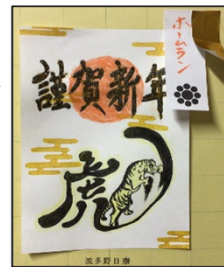 ホームラン
謹賀新年
虎
波多野日奈